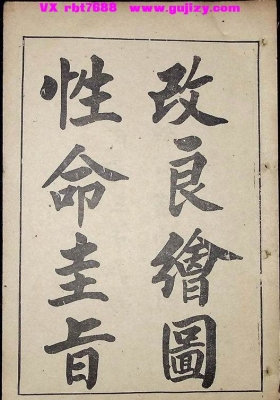 VX rbt7688 www.gujizy.com
改良繪圖
性命圭旨